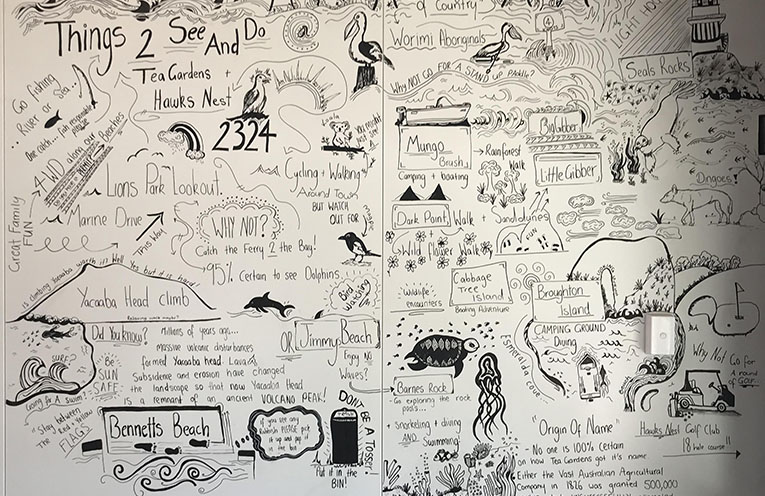 Things 2 See And Do
Tea Gardens +
Hawks Nest
2324
Go Fishing
River or Sea...
4WD along our
Beaches
Great Family
FUN
Lions Park Lookout.
Marine Drive
This Way
Koala
Cycling + Walking
Around Town
BUT WATCH
OUT FOR
WHY NOT?
Catch the Ferry 2 the Bay!
95% Certain to see Dolphins.
Bird
Watching
Is climbing Yacaaba worth it? Well Yes but it is hard!
Yacaaba Head climb
Did You Know?
Millions of years ago...
massive volcanic disturbances
formed Yacaaba head. Lava
Subsidence and erosion have changed
the landscape so that now Yacaaba Head
is a remnant of an ancient VOLCANO PEAK!
OR Jimmy Beach
Enjoy NO
Waves?
SURF?
Be
SUN
SAFE
Going for A Swim?
"Stay between
The Red + Yellow
FLAGS
Bennetts Beach
if you see any
Rubbish PLEASE pick
it up and pop it
in the bin
DON'T BE A Tosser!
Put it in the
BIN!
of Country
Worimi Aboriginals
Why NOT GO FOR A STAND UP Paddle?
Mungo
Brush
Camping + boating
Rainforest
Walk
Big Gibber
Little Gibber
Seals Rocks
Dingoes!
Dark Point Walk + Sand dunes
FUN
+
Wild Flower Walk
Wildlife
encounters
Cabbage
Tree
Island
Boating Adventure
Broughton
Island
CAMPING GROUND
Diving
Esmeralda Cove
Barnes Rock
- Go exploring the rock
pools...
+ snorkeling + diving
AND Swimming
Why Not Go for
A round
of Golf
Hawks Nest Golf Club
18 hole course!!
"Origin Of Name"
- No one is 100% certain
on how Tea Gardens got it's name.
Either the Vast Australian Agricultural
Company in 1826 was granted 500,000